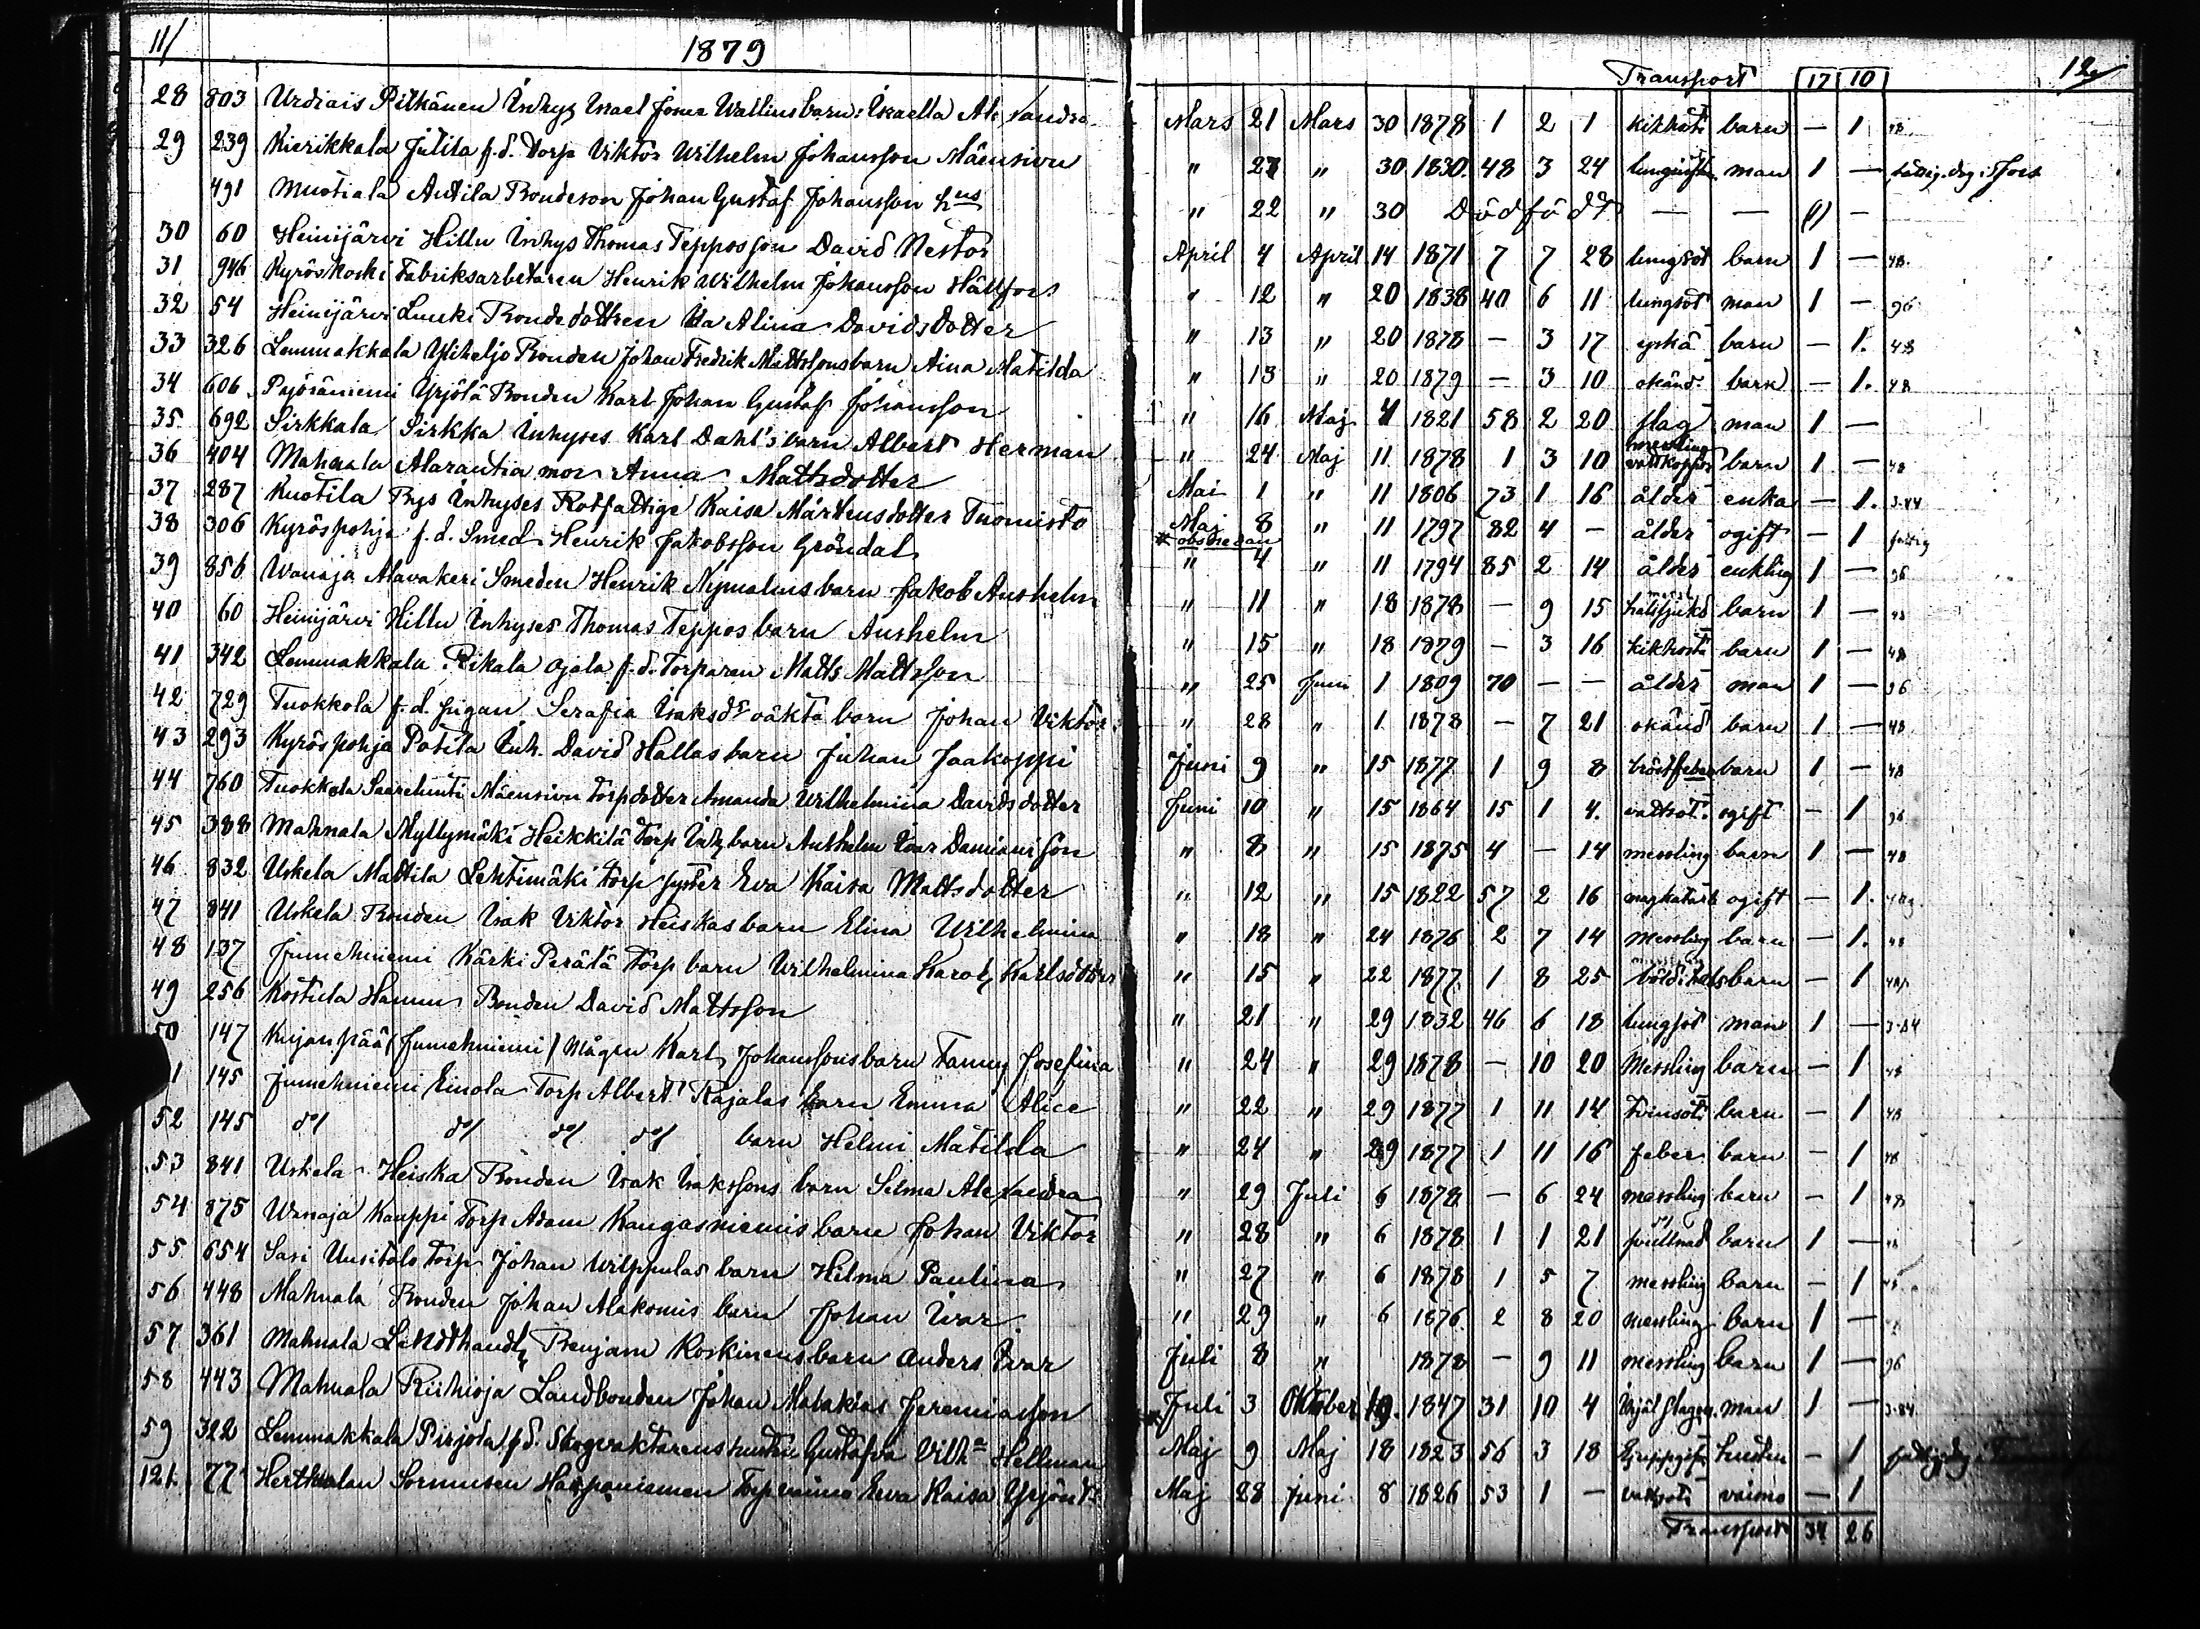 11/
1879
28 803 Urdiais Pitkänen Inhys Israel Josua Wallins barn: Israella Alexandra
29 239 Kierikkala Jutila f.d. Torp Viktor Wilhelm Johansson Mäensivu
491 Mustiala Anttila Bondeson Johan Gustaf Johansson hus
30 60 Heinijärvi Hillu Inhys Thomas Teppossson David Nestor
31 946 Kyröskoski Fabriksarbetaren Henrik Wilhelm Johansson Hällfors
32 54 Heinijärvi Luuki Bondedottren Ida Alina Davidsdotter
33 326 Lemmakkala Yliheljo Bonden Johan Fredrik Mattssons barn Aina Matilda
34 606 Pajösäniemi Yrjölä Bonden Karl Johan Gustaf Johansson
35 692 Sirkkala Sirkka Inhyses Karl Dahl's barn Albert Herman
36 404 Mahnala Alarantia mor Anna Mattsdotter
37 287 Kuotila Prys Inhyses Rotfattige Kaisa Mårtensdotter Tuomisto
38 306 Kyröspohja f.d. Smed Henrik Jakobsson Gröndal
39 856 Wanaja Alavakeri Smeden Henrik Nymalms barn Jakob Anshelm
40 60 Heinijärvi Hillu Inhyses Thomas Teppos barn Anshelm
41 342 Lemmakkala Rikala Ojala f.d. Torparen Matts Mattsson
42 729 Tuokkola f.d. pigan Serafia Isaksdr oäkta barn Johan Viktor
43 293 Kyröspohja Potila Inh. David Hallas barn Juhan Jaakoppi
44 760 Tuokkola Saarelunti Mäensivu Torpdotter Amanda Wilhelmina Davidsdotter
45 388 Mahnala Myllymäki Heikkilä Torp Inh barn Anshelm Ivar Damianisson
46 832 Uskela Mattila Lehtimäki Torp syster Eva Kaisa Mattsdotter
47 841 Uskela Bonden Isak Viktor Heiskas barn Elina Wilhelmina
48 137 Jumehniemi Kärki Perälä Torp barn Wilhelmina Karol. Karlsdotter
49 256 Kostula Hannu Bonden David Mattsson
50 147 Kirjanpää (Jumehniemi) Mågen Karl Johanssons barn Fanny Josefina
1 145 Jumehniemi Einola Torp Albert Rajalas barn Emma Alice
52 145 do/ do/ do/ do/ barn Helmi Matilda
53 841 Uskela Heiska Bonden Isak Isakssons barn Selma Alexandra
54 875 Wanaja Kauppi Torp Adam Kangasniemis barn Johan Viktor
55 654 Sasi Uusitalo Torp Johan Wilppulas barn Hilma Paulina
56 448 Mahnala Bonden Johan Alakomis barn Johan Ivar
57 361 Mahnala Lindthandl. Benjam Koskinens barn Anders Ivar
58 443 Mahnala Riihioja Landbonden Johan Malakias Jeremiasson
59 322 Lemmakkala Pirjola f.d. Skogvaktarens hustru Gustafva Vilha Hellman
121. 77 Herttualan Sormusen Haapaniemen Torp vaimo Eeva Kaisa Yrjön
12
Transport 17 10
Mars 21 Mars 30 1878 1 2 1 kikhosta barn — 1 48
" 27 " 30 1830 48 3 24 man 1 —
" 22 " 30 Dödfödt — — (1) —
April 4 April 14 1871 7 7 28 lungsot barn 1 — 48
" 12 " 20 1838 40 6 11 lungsot man 1 — 96
" 13 " 20 1878 — 3 17 barn — 1. 48
" 13 " 20 1879 — 3 10 okänd barn — 1. 48
" 16 Maj 4 1821 58 2 20 slag man 1 —
" 24 Maj 11 1878 1 3 10 messling vattkoppor barn 1 — 48
Mai 1 " 11 1806 73 1 16 ålder enka — 1. 3.84
Maj 8 " 11 1797 82 4 — ålder ogift — 1 fattig
* obs nedan
" 4 " 11 1794 85 2 14 ålder enkling 1 — 96
" 11 " 18 1878 — 9 15 halssjukd barn 1 — 48
" 15 " 18 1879 — 3 16 kikhosta barn 1 — 48
" 25 Juni 1 1809 70 — — ålder man 1 — 96
" 28 " 1 1878 — 7 21 okänd barn 1 — 48
Juni 9 " 15 1877 1 9 8 bröstfeber barn 1 — 48
Juni 10 " 15 1864 15 1 4. vattsot. ogift — 1 96
" 8 " 15 1875 4 — 14 messling barn 1 — 48
" 12 " 15 1822 57 2 16 magkatarr ogift — 1.
" 18 " 24 1876 2 7 14 messling barn — 1. 48
" 15 " 22 1877 1 8 25 barn — 1
" 21 " 29 1832 46 6 18 lungsot man 1 — 3.84
" 24 " 29 1878 — 10 20 Messling barn — 1 48
" 22 " 29 1877 1 11 14 barn — 1 48
" 24 " 29 1877 1 11 16 feber barn — 1 48
" 29 Juli 6 1878 — 6 24 messling barn — 1 48
" 28 " 6 1878 1 1 21 barn 1 — 48
" 27 " 6 1878 1 5 7 messling barn — 1 48
" 29 " 6 1876 2 8 20 messling barn 1 —
Juli 8 " 1878 — 9 11 messling barn 1 — 96
Juli 3 Oktober 19. 1847 31 10 4 man 1 — 3.84
* Maj 9 Maj 18 1823 56 3 18 hustru — 1
Maj 28 Juni 8 1826 53 1 — vattsot vaimo — 1
Transport 34 26